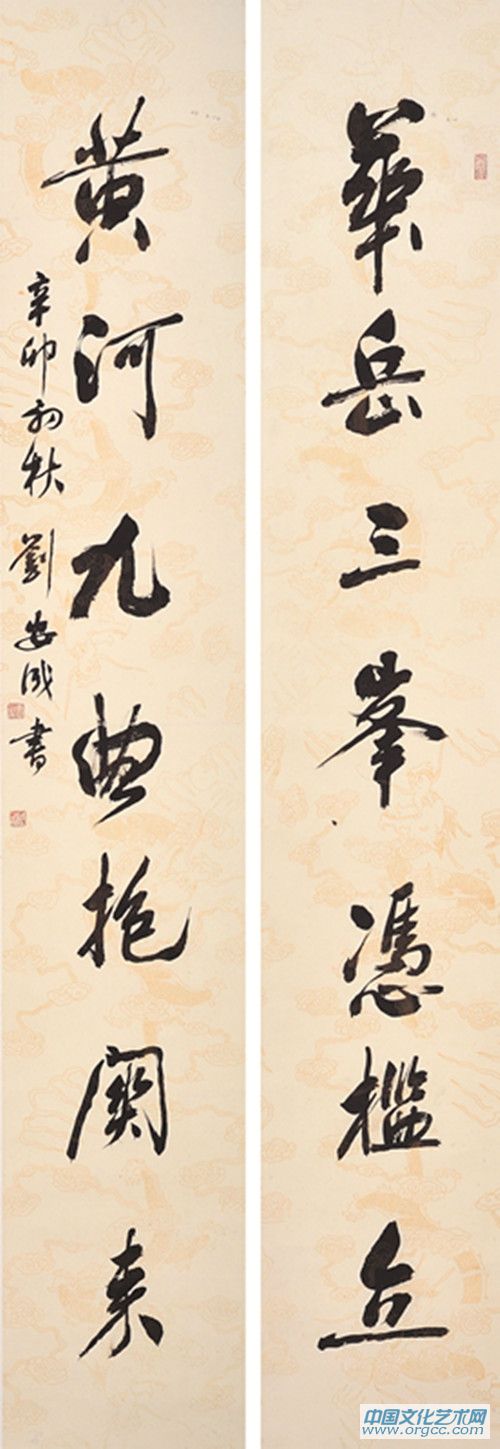 華岳三峯憑檻立
黄河九曲抱關来
辛卯初秋劉安成書
中国文化艺术网
www.orgcc.com